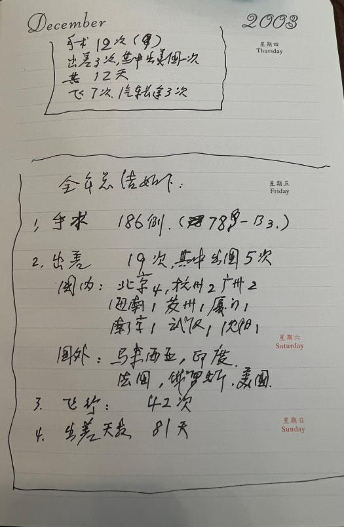 December 2003
手术 12次（8）
星期四
Thursday
出差3次，其中出美国一次
共 12天
飞7次，汽车长途3次
全年总结如下：
星期五
Friday
1. 手术 186例.（78♀－B3.）
2. 出差 19次，其中出国5次
国内：北京4，杭州2 广州2
海南1 苏州1 厦门1
南京1 武汉1 沈阳1
星期六
Saturday
国外：马来西亚，印度
法国，俄罗斯，美国
3. 飞行： 42次
星期日
Sunday
4. 出差天数 81天